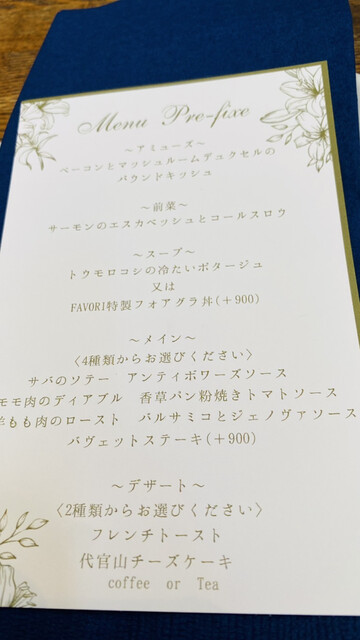 Menu Pre-fixe
～アミューズ～
ベーコンとマッシュルームデュクセルの
パウンドキッシュ
～前菜～
サーモンのエスカベッシュとコールスロウ
～スープ～
トウモロコシの冷たいポタージュ
又は
FAVORI特製フォアグラ丼(+900)
～メイン～
〈4種類からお選びください〉
サバのソテー アンティボワーズソース
モモ肉のディアブル 香草パン粉焼きトマトソース
もも肉のロースト バルサミコとジェノヴァソース
バヴェットステーキ(+900)
～デザート～
〈2種類からお選びください〉
フレンチトースト
代官山チーズケーキ
coffee or Tea